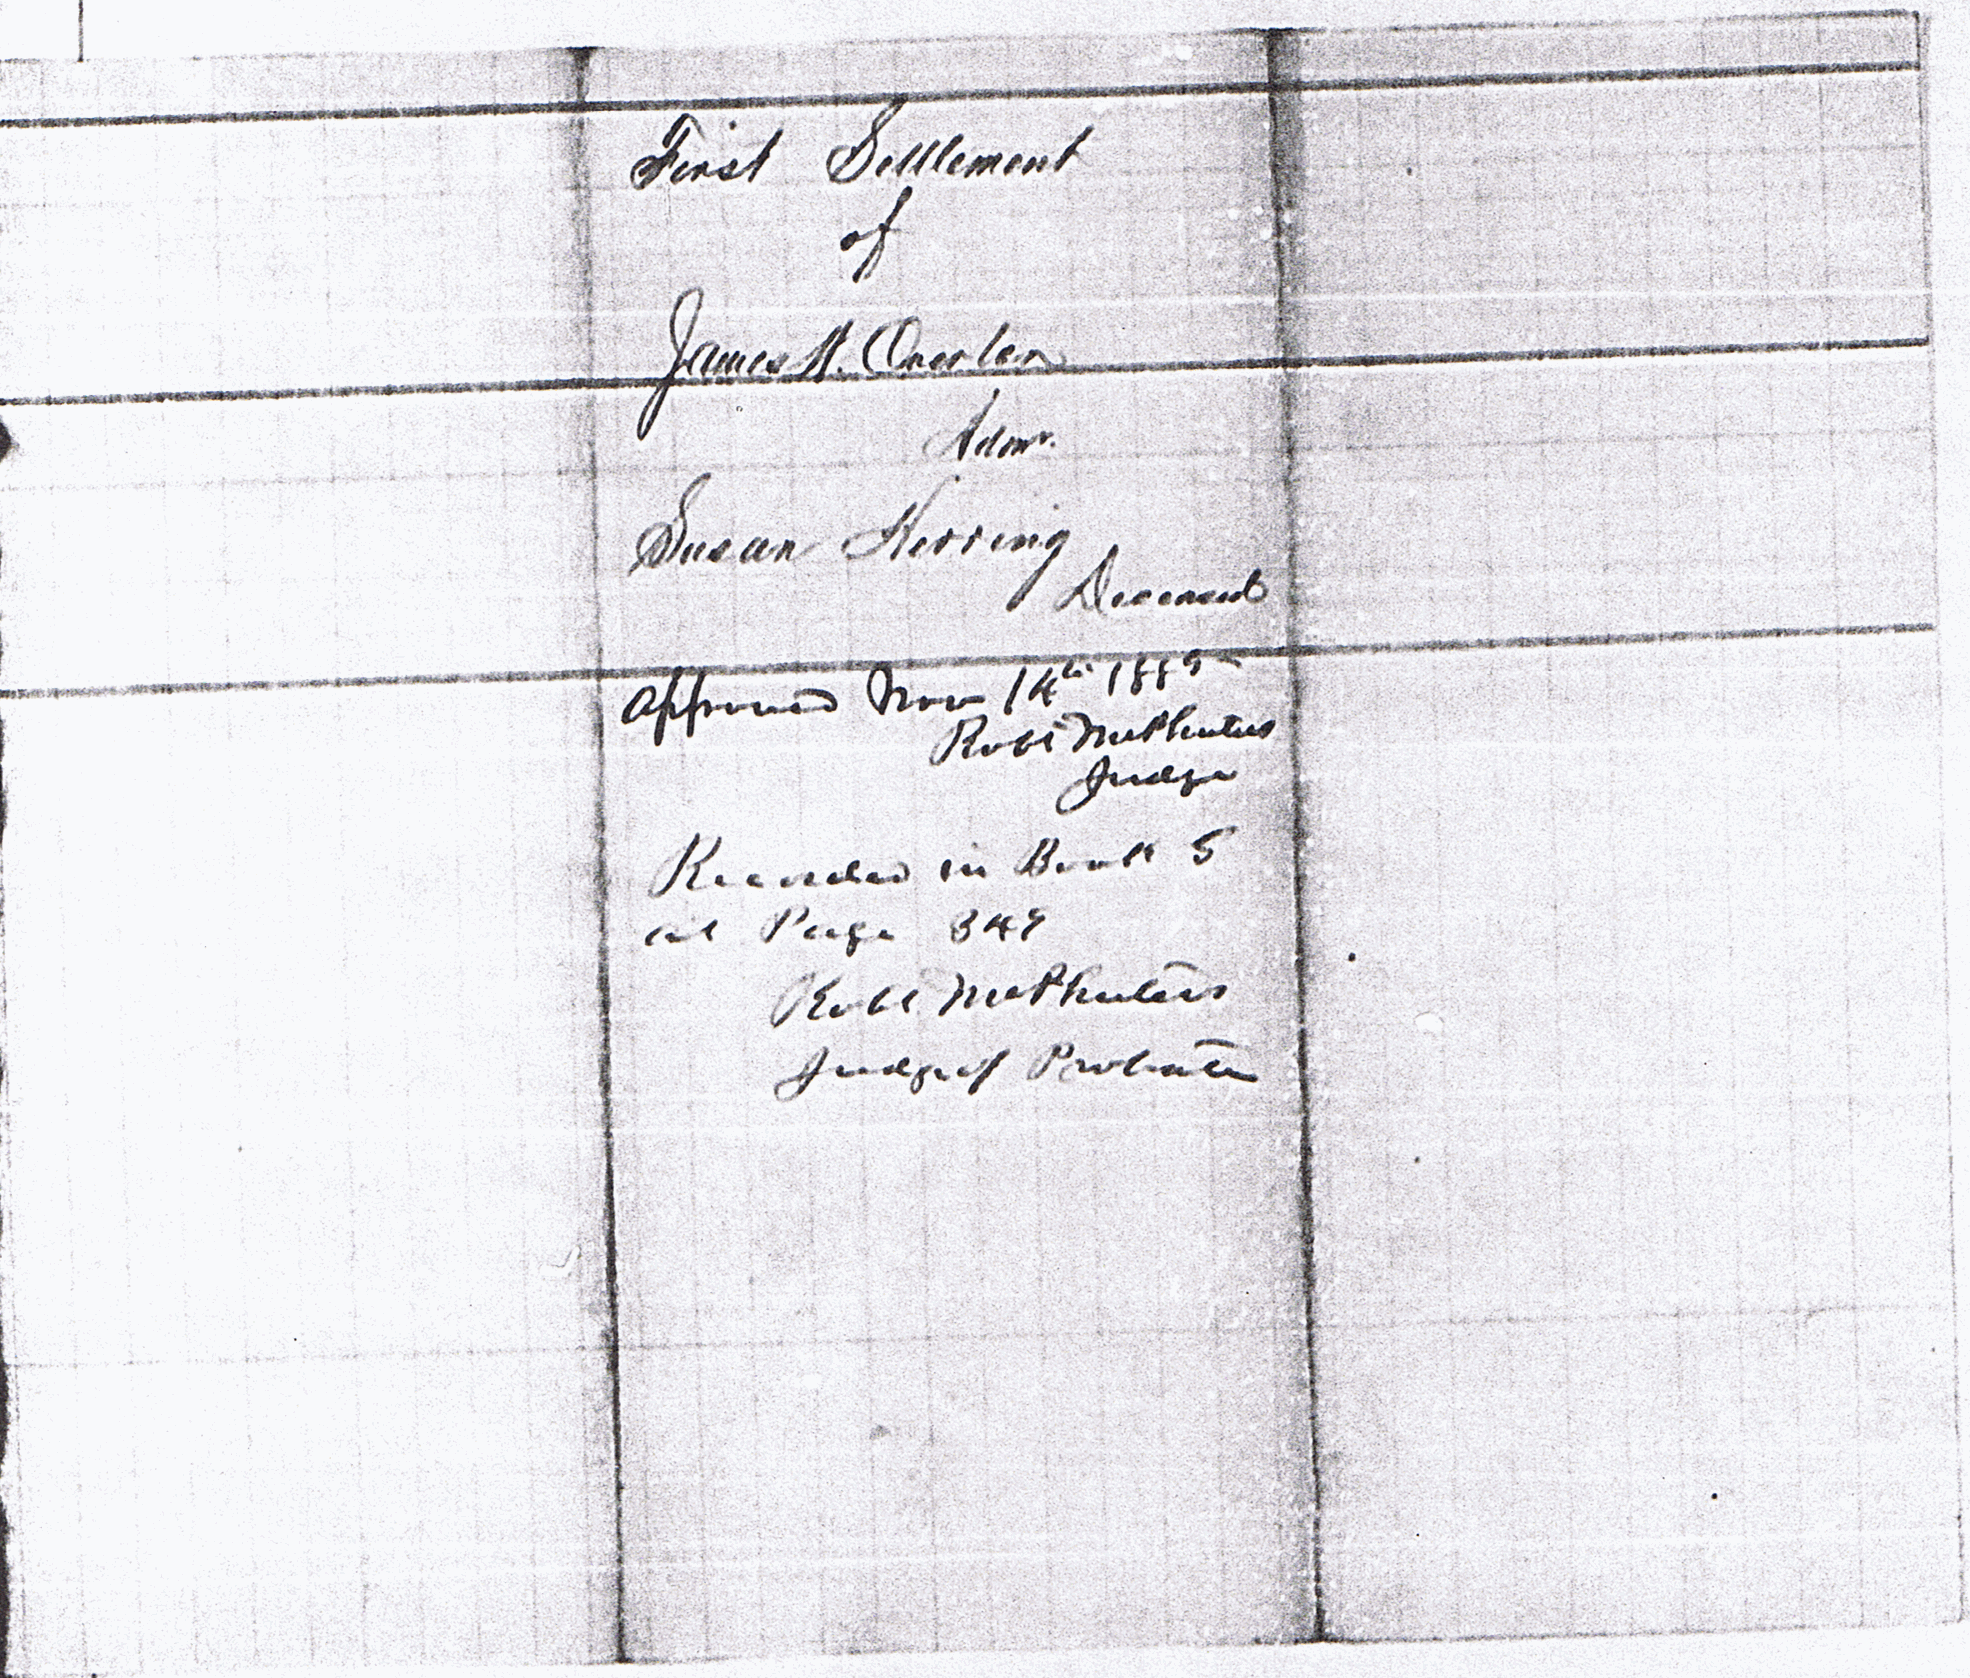 First Settlement
of
James H.
Admr.
Susan Herring
Deceased
Approved Nov 14th 1885
Robt McPheeters
Judge
Recorded in Book 5
at Page 349
Robt McPheeters
Judge of Probate